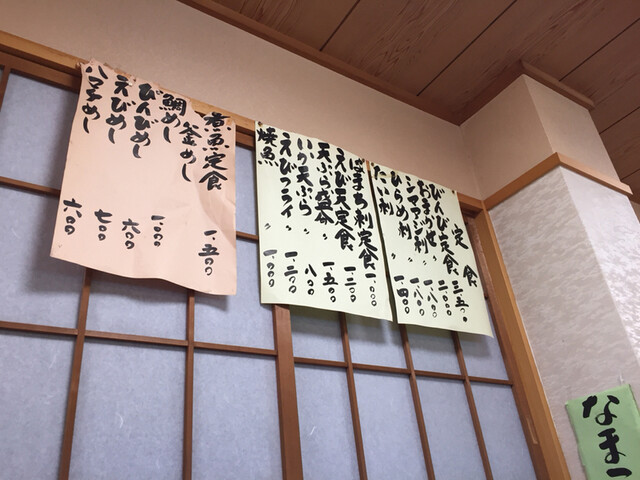 定食
びんび定食 三、五〇〇
おまかせ 二、〇〇〇
シマアジ刺 〃 一、八〇〇
ひらめ刺 〃 一、八〇〇
たい刺 〃 一、四〇〇
はまち刺定食 一、〇〇〇
えび天定食 一、三〇〇
天ぷら盛合 〃 一、五〇〇
いか天ぷら 〃 八〇〇
えびフライ 〃 一、二〇〇
焼魚 〃 一、〇〇〇
煮魚定食 一、五〇〇
釜めし
鯛めし 一、〇〇〇
びんびめし 六〇〇
えびめし 七〇〇
ハマチめし 六〇〇
なま